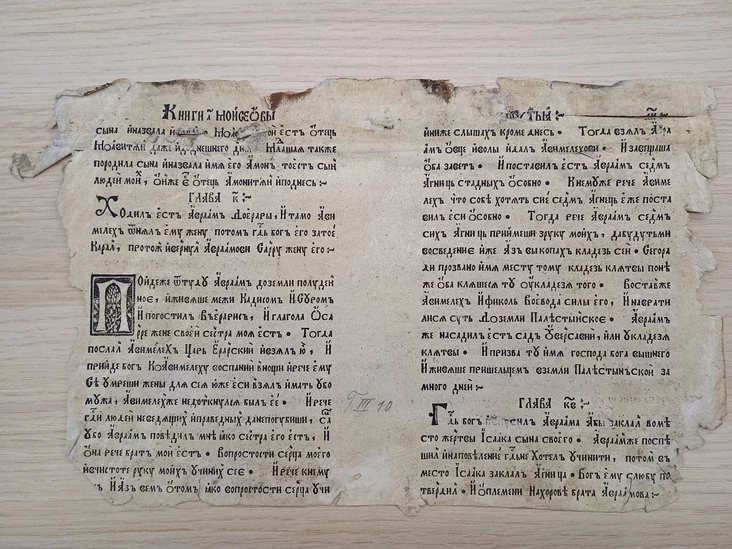 Книги ҃а мойсеѡвы
сына йназвала й естъ ѿтець
Моавитѧй даже йдоднешнего днѧ Млашаѧ также
породила сына йназвала имѧ его Амонъ тоестъ сый
людей мой, ѿнже ест ѿтець Амонитѧй иподнесь :~
ГЛАВА К :~
Ходил естъ Авраам Догерары, Йтамо Ави
мелех ѿнѧлъ ему жену потомъ гдь богъ его затое
Карал, протож йвернул Авраамови Сарру жену его :~
Пойдеже ѿтуду Авраам доземли полудей
ное, йживѧше межи Кадисом Йсуром
Йпогостил Въгерарис, Йглагола ѿСа
рре жене своей сестра моѧ естъ • Тогда
послал Авимелехъ Царь Герарский йвзѧлъ ю, Й
прийде богъ Коавимелеху воспании внощи йрече ему
Се умреши жены длѧ сеѧ юже еси взѧлъ ймать убо
мужа, Авимелехже недоткнулсѧ былъ ее • Йрече
гди людей неведѧщих йправедных данепогубиши, са
убо Авраам поведилъ мне ико сестра его естъ, Й
ѿна рече брат мой естъ • Вопростости серца моего
йвчистоте руку моих учиних сие • Йрече кнему
Йазъ вем ѿтом ико вопростости серца учи
бытыѧ :~
йниже слышах кроме днесь • Тогда взѧлъ Авра
амъ ѿвце йволы йдалъ Авимелехови • Йзавещаша
ѿба завет • Йпоставил естъ Авраам седмъ
Агницъ стадных ѿсобно • Кнемуже рече Авиме
лехъ что собе хотѧтъ сие седмъ Агницъ еже поста
вилъ еси ѿсобно • Тогда рече Авраам седмъ
сих Агницъ приймеши зруку моих, дабудутьми
восведение йже Азъ выкопах кладезь сей • Сегора
ди прозвано имѧ месту тому кладезь клѧтвы поне
же ѿба клѧшесѧ ту ѹкладезѧ того • Воставже
Авимелех Йфиколь Воевода силы его, Йнаврати
лисѧ сутъ Доземли Палестыйское • Авраам
же насадил естъ сад ѹверсавии, или ѹкладезѧ
клѧтвы • Йпризва ту имѧ господа бога вышнего
Йживѧше пришельцем вземли Палестынской за
много дней :~
ГЛАВА КВ :~
Гдь богъ Авраама абы заклал воме
сто жертвы Ісаака сына своего • Авраамже поспе
шил йнаповеление гдьне хотел учинити, потом въ
место Ісаака заклал Агница • Богъ ему слюбу по
твердил • Йѿплемени Нахорове брата Авраамова :~
III 10